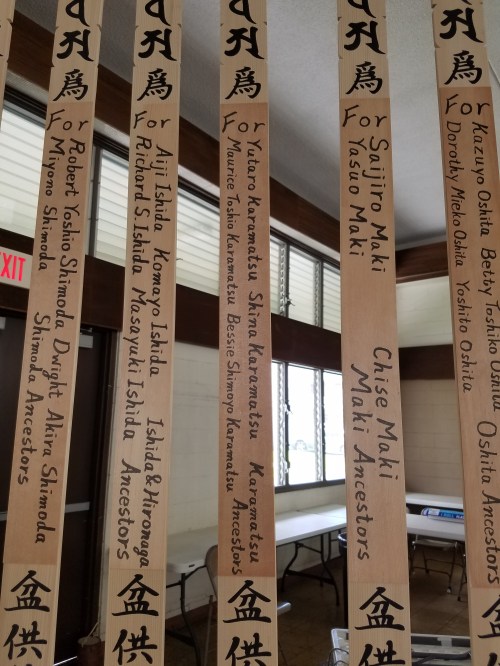 爲
For
Robert Yoshio Shimoda Dwight Akira Shimoda
Miyono Shimoda Shimoda Ancestors
盆
供
爲
For
Aiji Ishida Komayo Ishida Ishida & Hiromaga
Richard S. Ishida Masayuki Ishida Ancestors
盆
供
爲
For
Yutaro Karamatsu Shina Karamatsu Karamatsu
Maurice Toshio Karamatsu Bessie Shimoyo Karamatsu Ancestors
盆
供
爲
For
Saijiro Maki Chise Maki
Yasuo Maki Maki Ancestors
盆
供
爲
For
Kazuyo Oshita Betsy Toshiko Oshita
Dorothy Mieko Oshita Yoshito Oshita Oshita Ancestors
EXIT